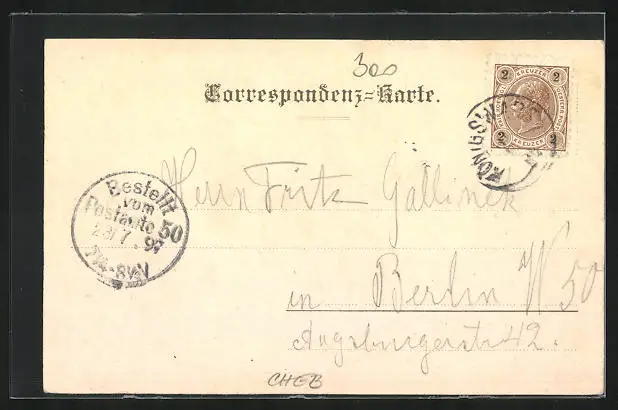 300
Correspondenz=Karte.
2 KREUZER 2
2 KREUZER 2
KÖNIGSWART
Bestellt
vom
Postamte 50
23/7.97
Herrn Fritz Gallinek
in Berlin W 50
Augsburgerstr 42.
CHEB